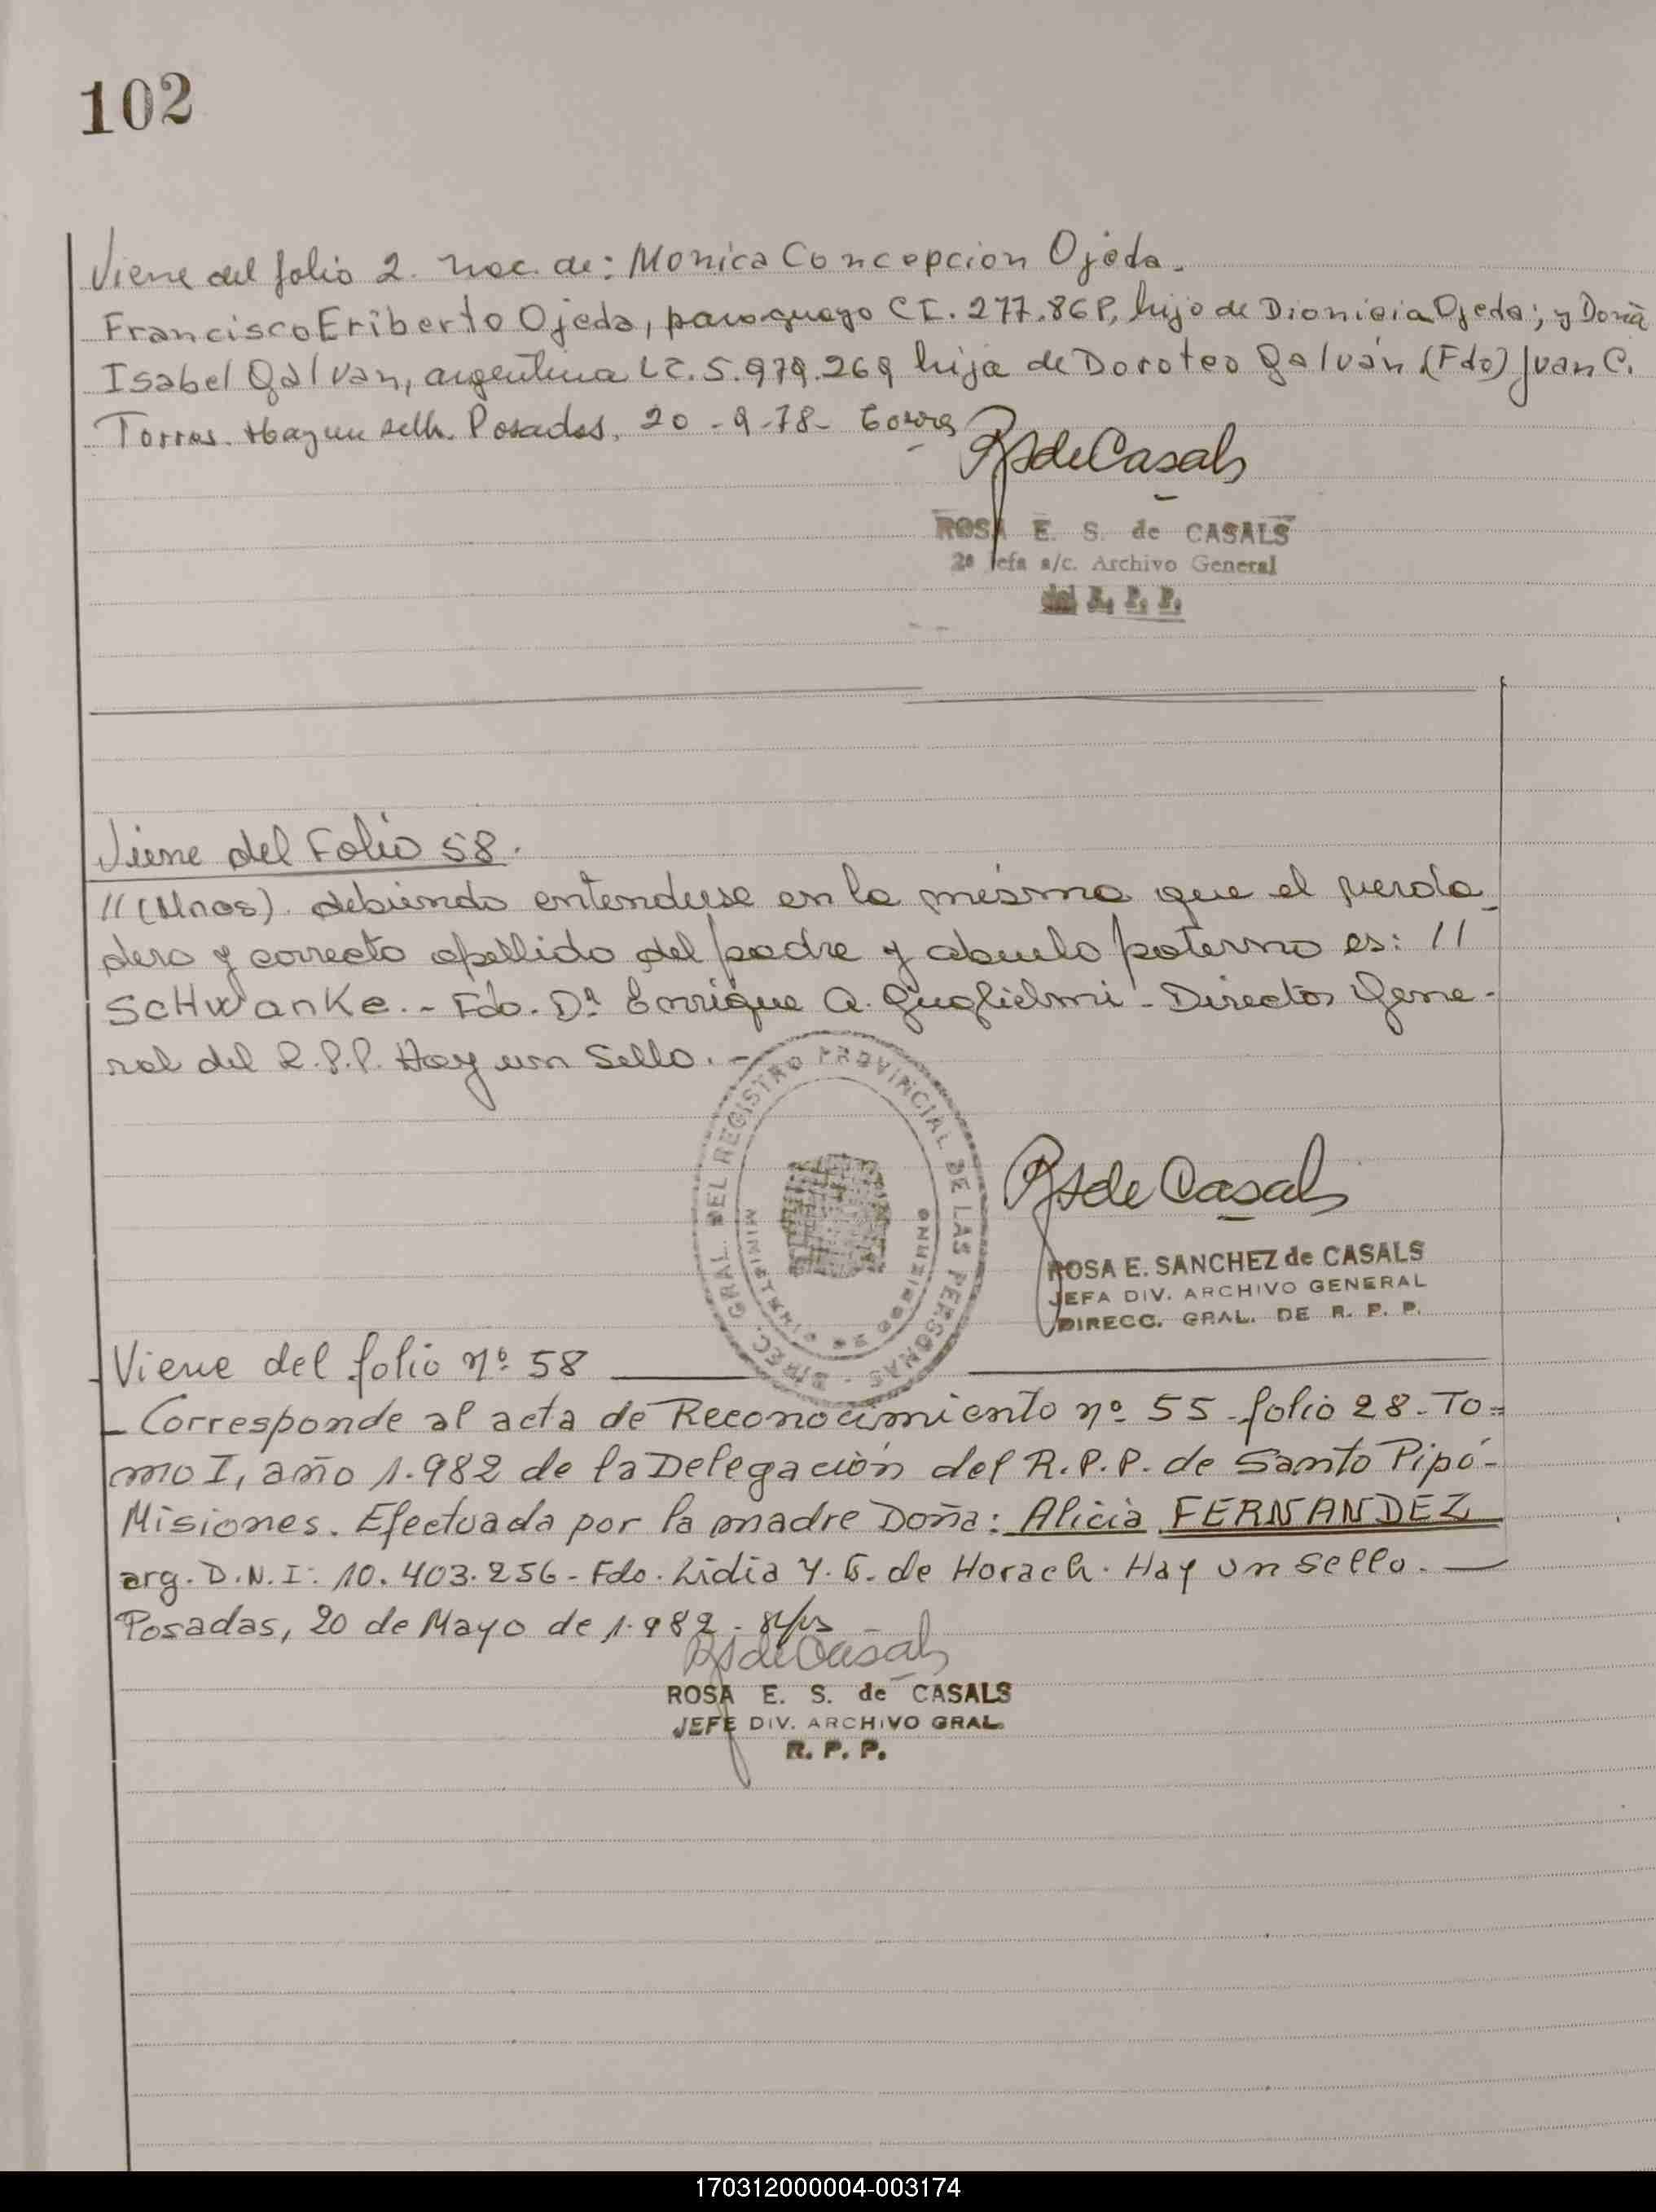 102
Viene del folio 2. nac. de: Monica Concepcion Ojeda.
Francisco Eriberto Ojeda, paraguayo C I. 277.868, hijo de Dionicia Ojeda; y Doña
Isabel Galvan, argentina L C. 5.979.269 hija de Doroteo Galván (Fdo) Juan C.
Torres. Hay un sello. Posadas, 20 - 9 - 78 -
RSdeCasals
ROSA E. S. de CASALS
2ª Jefa a/c. Archivo General
del R. P. P.
Viene del Folio 58.
// (Unos). debiendo entenderse en la misma que el verda_
dero y correcto apellido del padre y abuelo paterno es: //
SCHwanke. - Fdo. Dr Enrique A. Guglielmi - Director Gene-
ral del R.P.P. Hay un Sello. -
DIREC. GRAL. DEL REGISTRO PROVINCIAL DE LAS PERSONAS
RSde Casals
ROSA E. SANCHEZ de CASALS
JEFA DIV. ARCHIVO GENERAL
DIRECC. GRAL. DE R. P. P.
Viene del folio nº 58
- Corresponde al acta de Reconocimiento nº 55 - folio 28 - To=
mo I, año 1.982 de la Delegación del R.P.P. de Santo Pipó -
Misiones. Efectuada por la madre Doña: Alicia FERNANDEZ
arg. D.N.I: 10.403.256 - Fdo. Lidia Y. G. de Horach. Hay un sello. -
Posadas, 20 de Mayo de 1.982 -
RSdeCasals
ROSA E. S. de CASALS
JEFE DIV. ARCHIVO GRAL.
R. P. P.
170312000004-003174